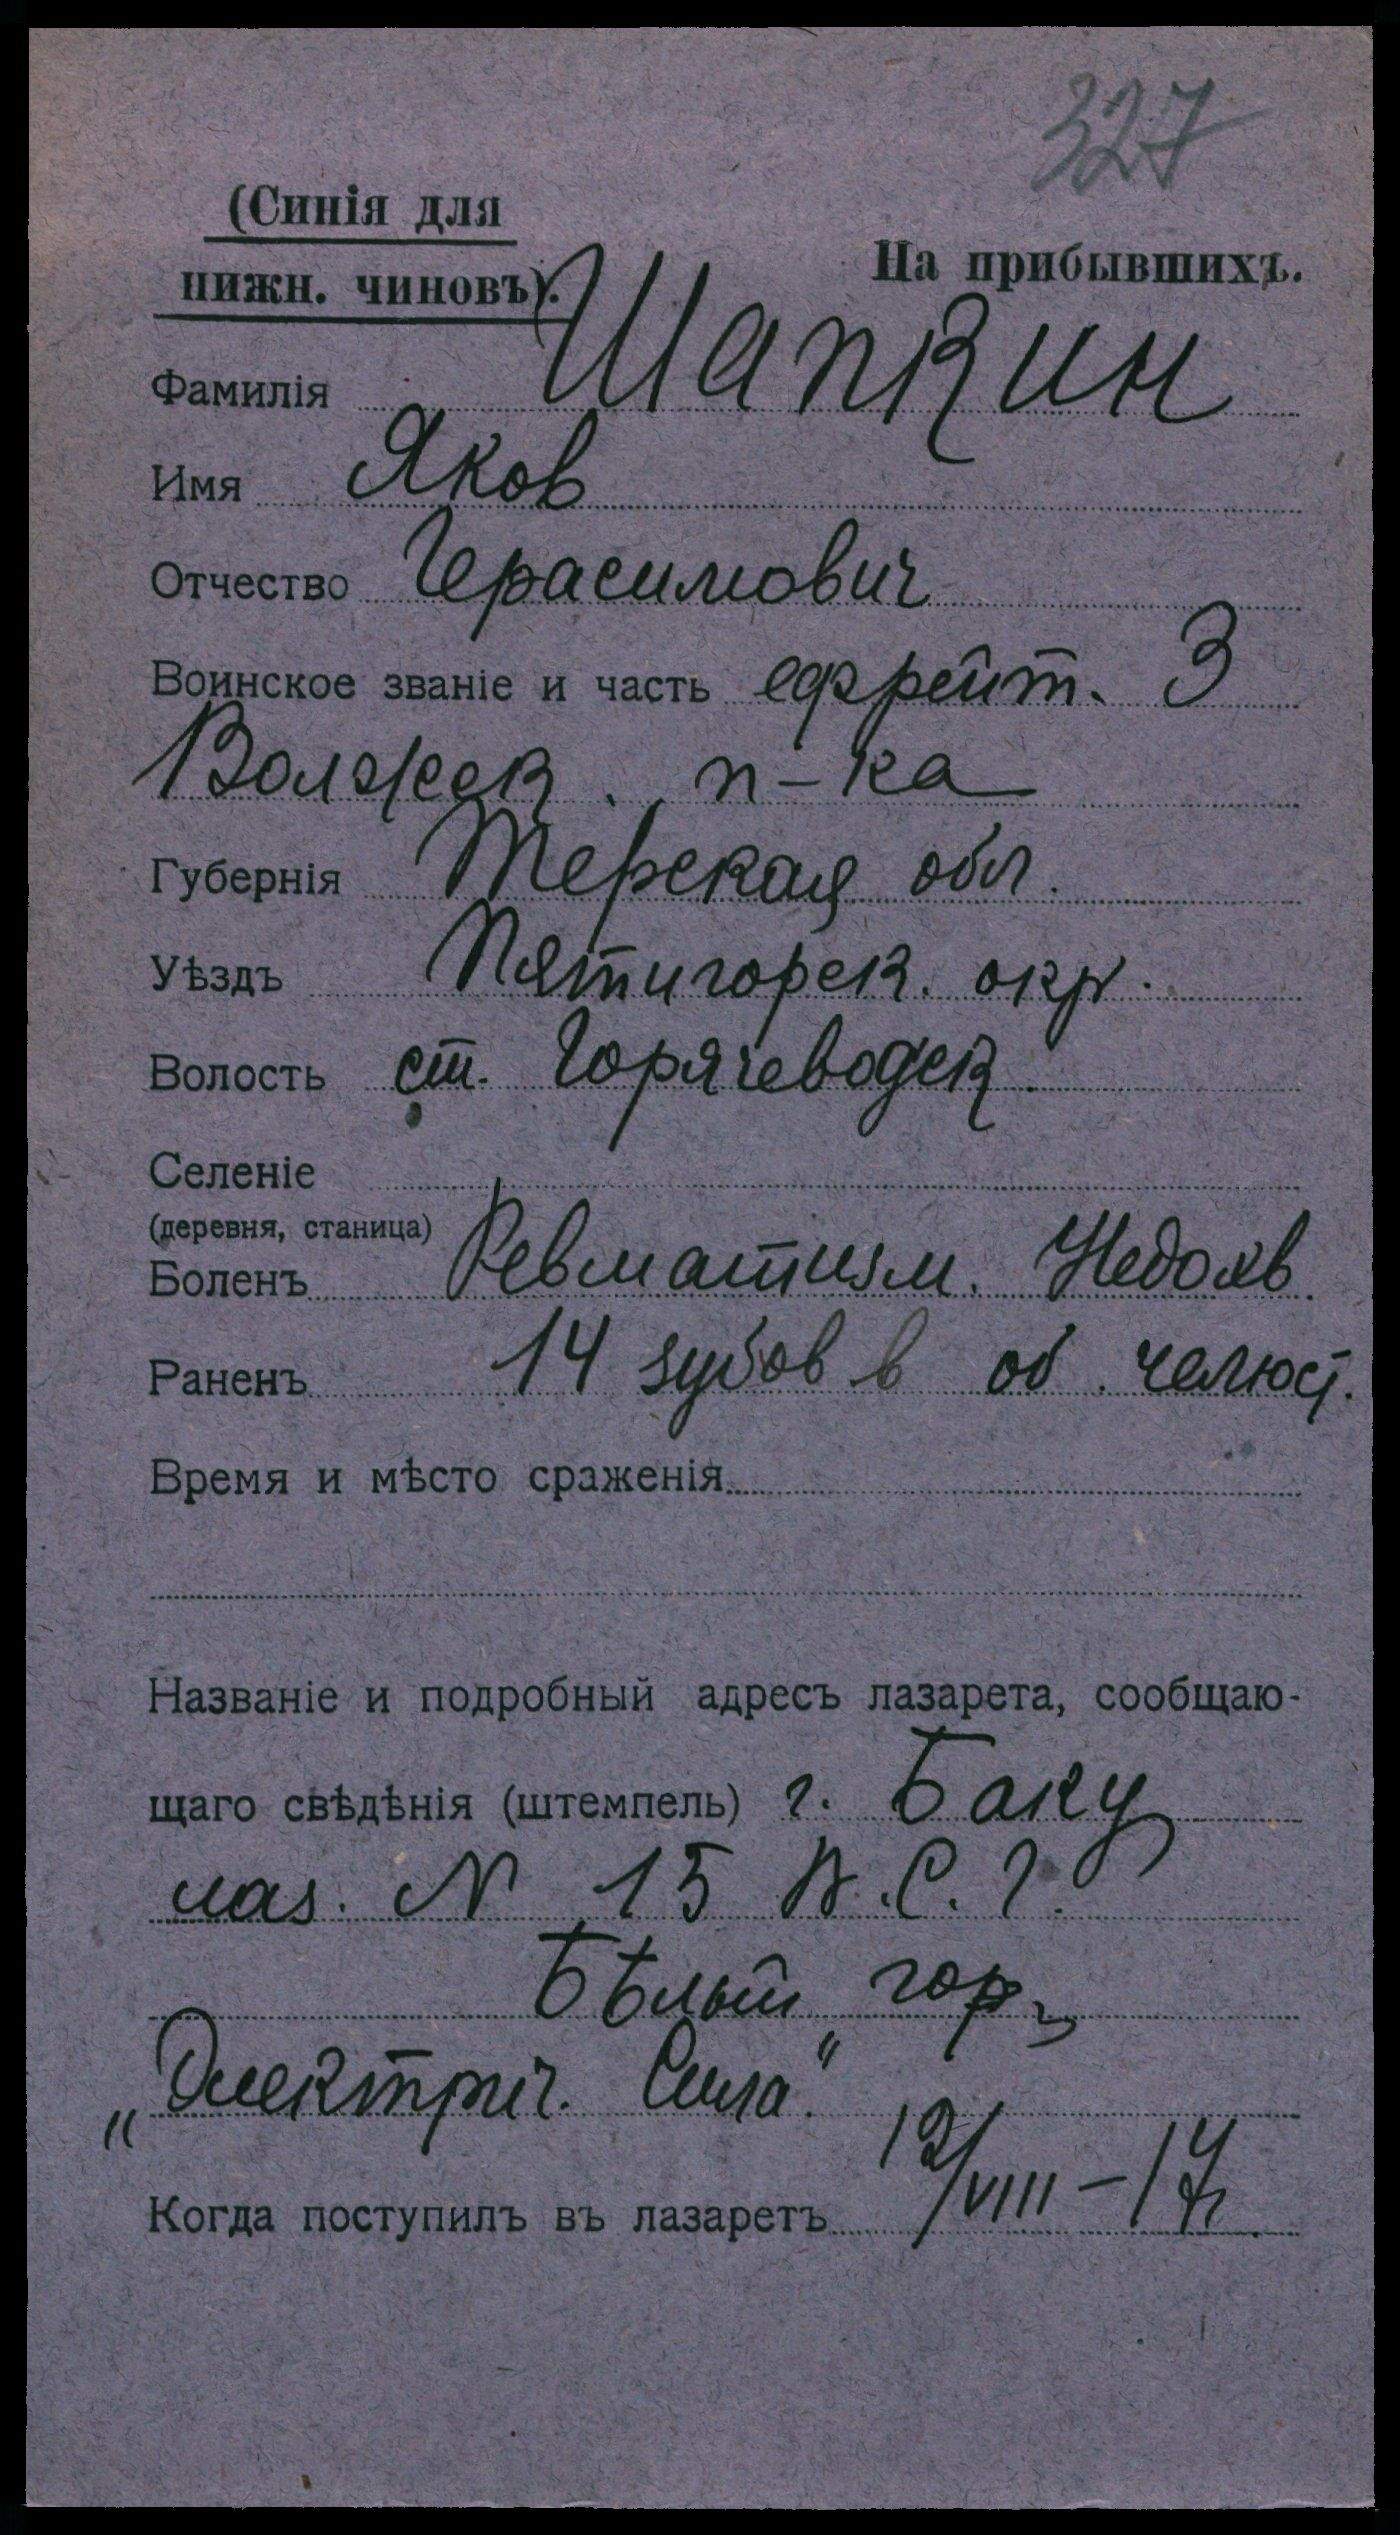 327
(Синія для
нижн. чиновъ).
На прибывшихъ.
Фамилія Шапкин
Имя Яков
Отчество Герасимович
Воинское званіе и часть ефрейт. 3
Волжск. п-ка
Губернія Терская обл.
Уѣздъ Пятигорск. окр.
Волость ст. Горячеводск.
Селеніе
(деревня, станица)
Боленъ Ревматизм. Недохв.
Раненъ 14 зубов в об. челюст.
Время и мѣсто сраженія
Названіе и подробный адресъ лазарета, сообщаю-
щаго свѣдѣнія (штемпель) г. Баку
лаз. № 15 В.С.Г.
Бѣлый гор.
„Электрич. Сила“
Когда поступилъ въ лазаретъ 12/VIII-17